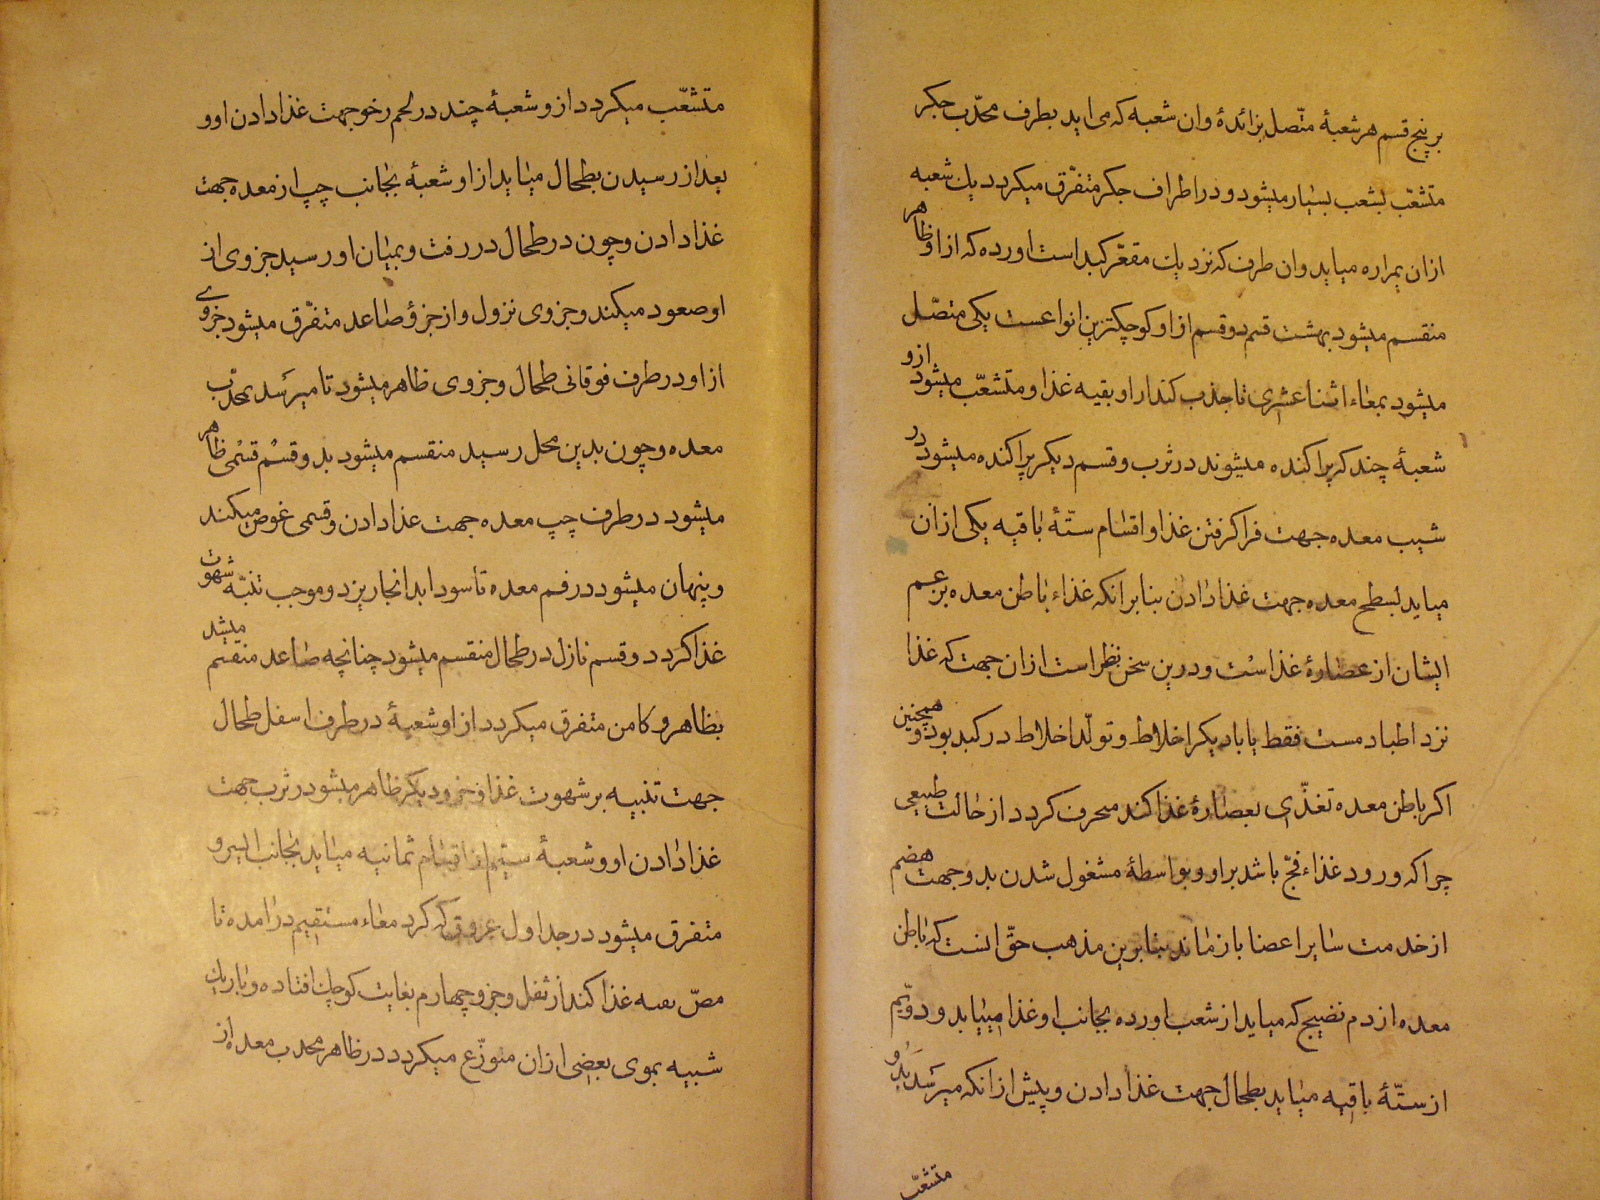 بر پنج قسم هر شعبهٔ متّصل بزائدهٔ وان شعبه که می اید بطرف محدّب جکر
متشعّب بشعب بسیار میشود و در اطراف جکر متفرّق میکردد یك شعبه
ازان بمراره میاید وان طرف که نزدیك مقعّر کبد است اورده که از او ظاهر
منقسم میشود بهشت قسم دو قسم از او کوچکترین انواعست یکی متصّل
میشود بمعاء اثنا عشری تا جذب کند ازو بقیه غذا و متشعّب میشود ازو
شعبهٔ چند که پراکنده میشوند در ثرب و قسم دیکر پراکنده میشود در
شیب معده جهت فرا کرفتن غذا و اقسام ستّهٔ باقیه یکی ازان
میاید بسطح معده جهت غذا دادن بنابر انکه غذاء باطن معده بزعم
ایشان از عصارهٔ غذاست و درین سخن نظر است ازان جهت که غذا
نزد اطبا دمست فقط یا با دیکر اخلاط و تولّد اخلاط در کبد بود و همچنین
اکر باطن معده تغذّی بعصارهٔ غذا کند منحرف کردد از حالت طبیعی
چرا که ورود غذاء فجّ باشد بر او و بواسطهٔ مشغول شدن بدو جهت هضم
از خدمت سایر اعضا باز ماند بنابرین مذهب حقّ انست که باطن
معده از دم نضیج که میاید از شعب اورده بجانب او غذا مییابد و دویّم
از ستّهٔ باقیه میاید بطحال جهت غذا دادن و پیش از انکه میرسد بدو
متشعّب
متشعّب میکردد ازو شعبهٔ چند در لحم رخو جهت غذا دادن او و
بعد از رسیدن بطحال میاید از او شعبهٔ بجانب چپ از معده جهت
غذا دادن و چون در طحال در رفت و بمیان او رسید جزوی از
او صعود میکند و جزوی نزول و از جزؤ صاعد متفرّق میشود جزوے
از او در طرف فوقانی طحال و جزوی ظاهر میشود تا میرسد بمحدّب
معده و چون بدین محل رسید منقسم میشود بدو قسم قسمی ظاهر
میشود در طرف چپ معده جهت غذا دادن و قسمی غوص میکند
و پنهان میشود در فم معده تا سودا بدانجا ریزد و موجب تنبّه شهوت
غذا کردد و قسم نازل در طحال منقسم میشود چنانچه صاعد منقسم میشد
بظاهر و کامن متفرق میکردد از او شعبهٔ در طرف اسفل طحال
جهت تنبیه بر شهوت غذا و جزو دیکر ظاهر میشود در ثرب جهت
غذا دادن او و شعبهٔ سیّم از اقسام ثمانیه میاید بجانب ایسر و
متفرق میشود در جداول عروق که کرد معاء مستقیم درامده تا
مصّ بقیه غذا کند از ثفل و جزو چهارم بغایت کوچك افتاده و باریك
شبیه بموی بعضی ازان متوزّع میکردد در ظاهر محدب معده از